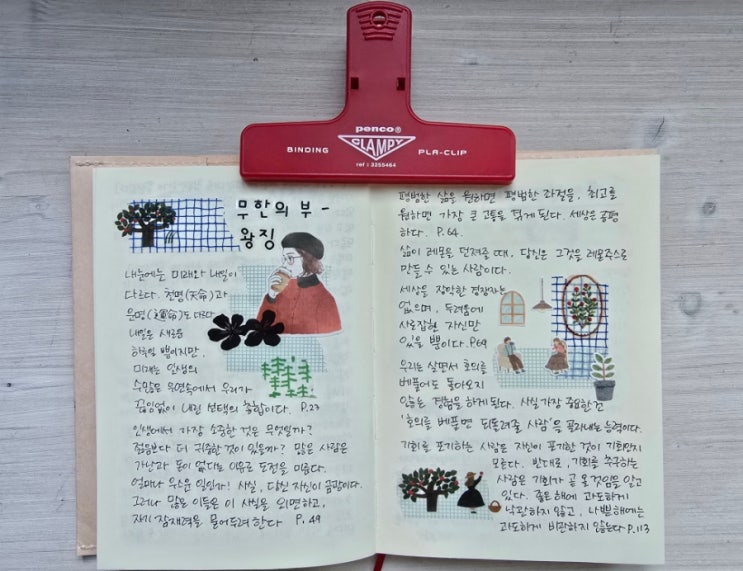 penco®
CLAMPY
BINDING
PLA-CLIP
ref : 3255464
무한의 부 -
왕징
내눈에는 미래와 내일이
다르다. 천명(天命)과
운명(運命)도 다르다
내일은 새로운
하루일 뿐이지만,
미래는 인생의
수많은 우연속에서 우리가
끊임없이 내린 선택의 총합이다. P.23
인생에서 가장 소중한 것은 무엇일까?
젊음보다 더 귀중한 것이 있을까? 많은 사람은
가난과 돈이 없다는 이유로 도전을 미룬다.
얼마나 우스운 일인가! 사실, 당신 자신이 금광이다.
그러나 많은 이들은 이 사실을 외면하고,
자기 잠재력을 묻어두려 한다 P.49
평범한 삶을 원하면 평범한 좌절을, 최고를
원하면 가장 큰 고통을 겪게 된다. 세상은 공평
하다. P.64
삶이 레몬을 던져줄 때, 당신은 그것을 레몬주스로
만들 수 있는 사람이다.
세상을 장악한 경쟁자는
없으며, 두려움에
사로잡힌 자신만
있을 뿐이다. P.69
우리는 살면서 호의를
베풀어도 돌아오지
않는 경험을 하게된다. 사실 가장 중요한건
'호의를 베풀면 되돌려줄 사람'을 골라내는 능력이다.
기회를 포기하는 사람은 자신이 포기한 것이 기회인지
모른다. 반대로, 기회를 추구하는
사람은 기회가 곧 올것임을 알고
있다. 좋은 해에 과도하게
낙관하지 않고, 나쁜해에는
과도하게 비관하지 않는다 P.113